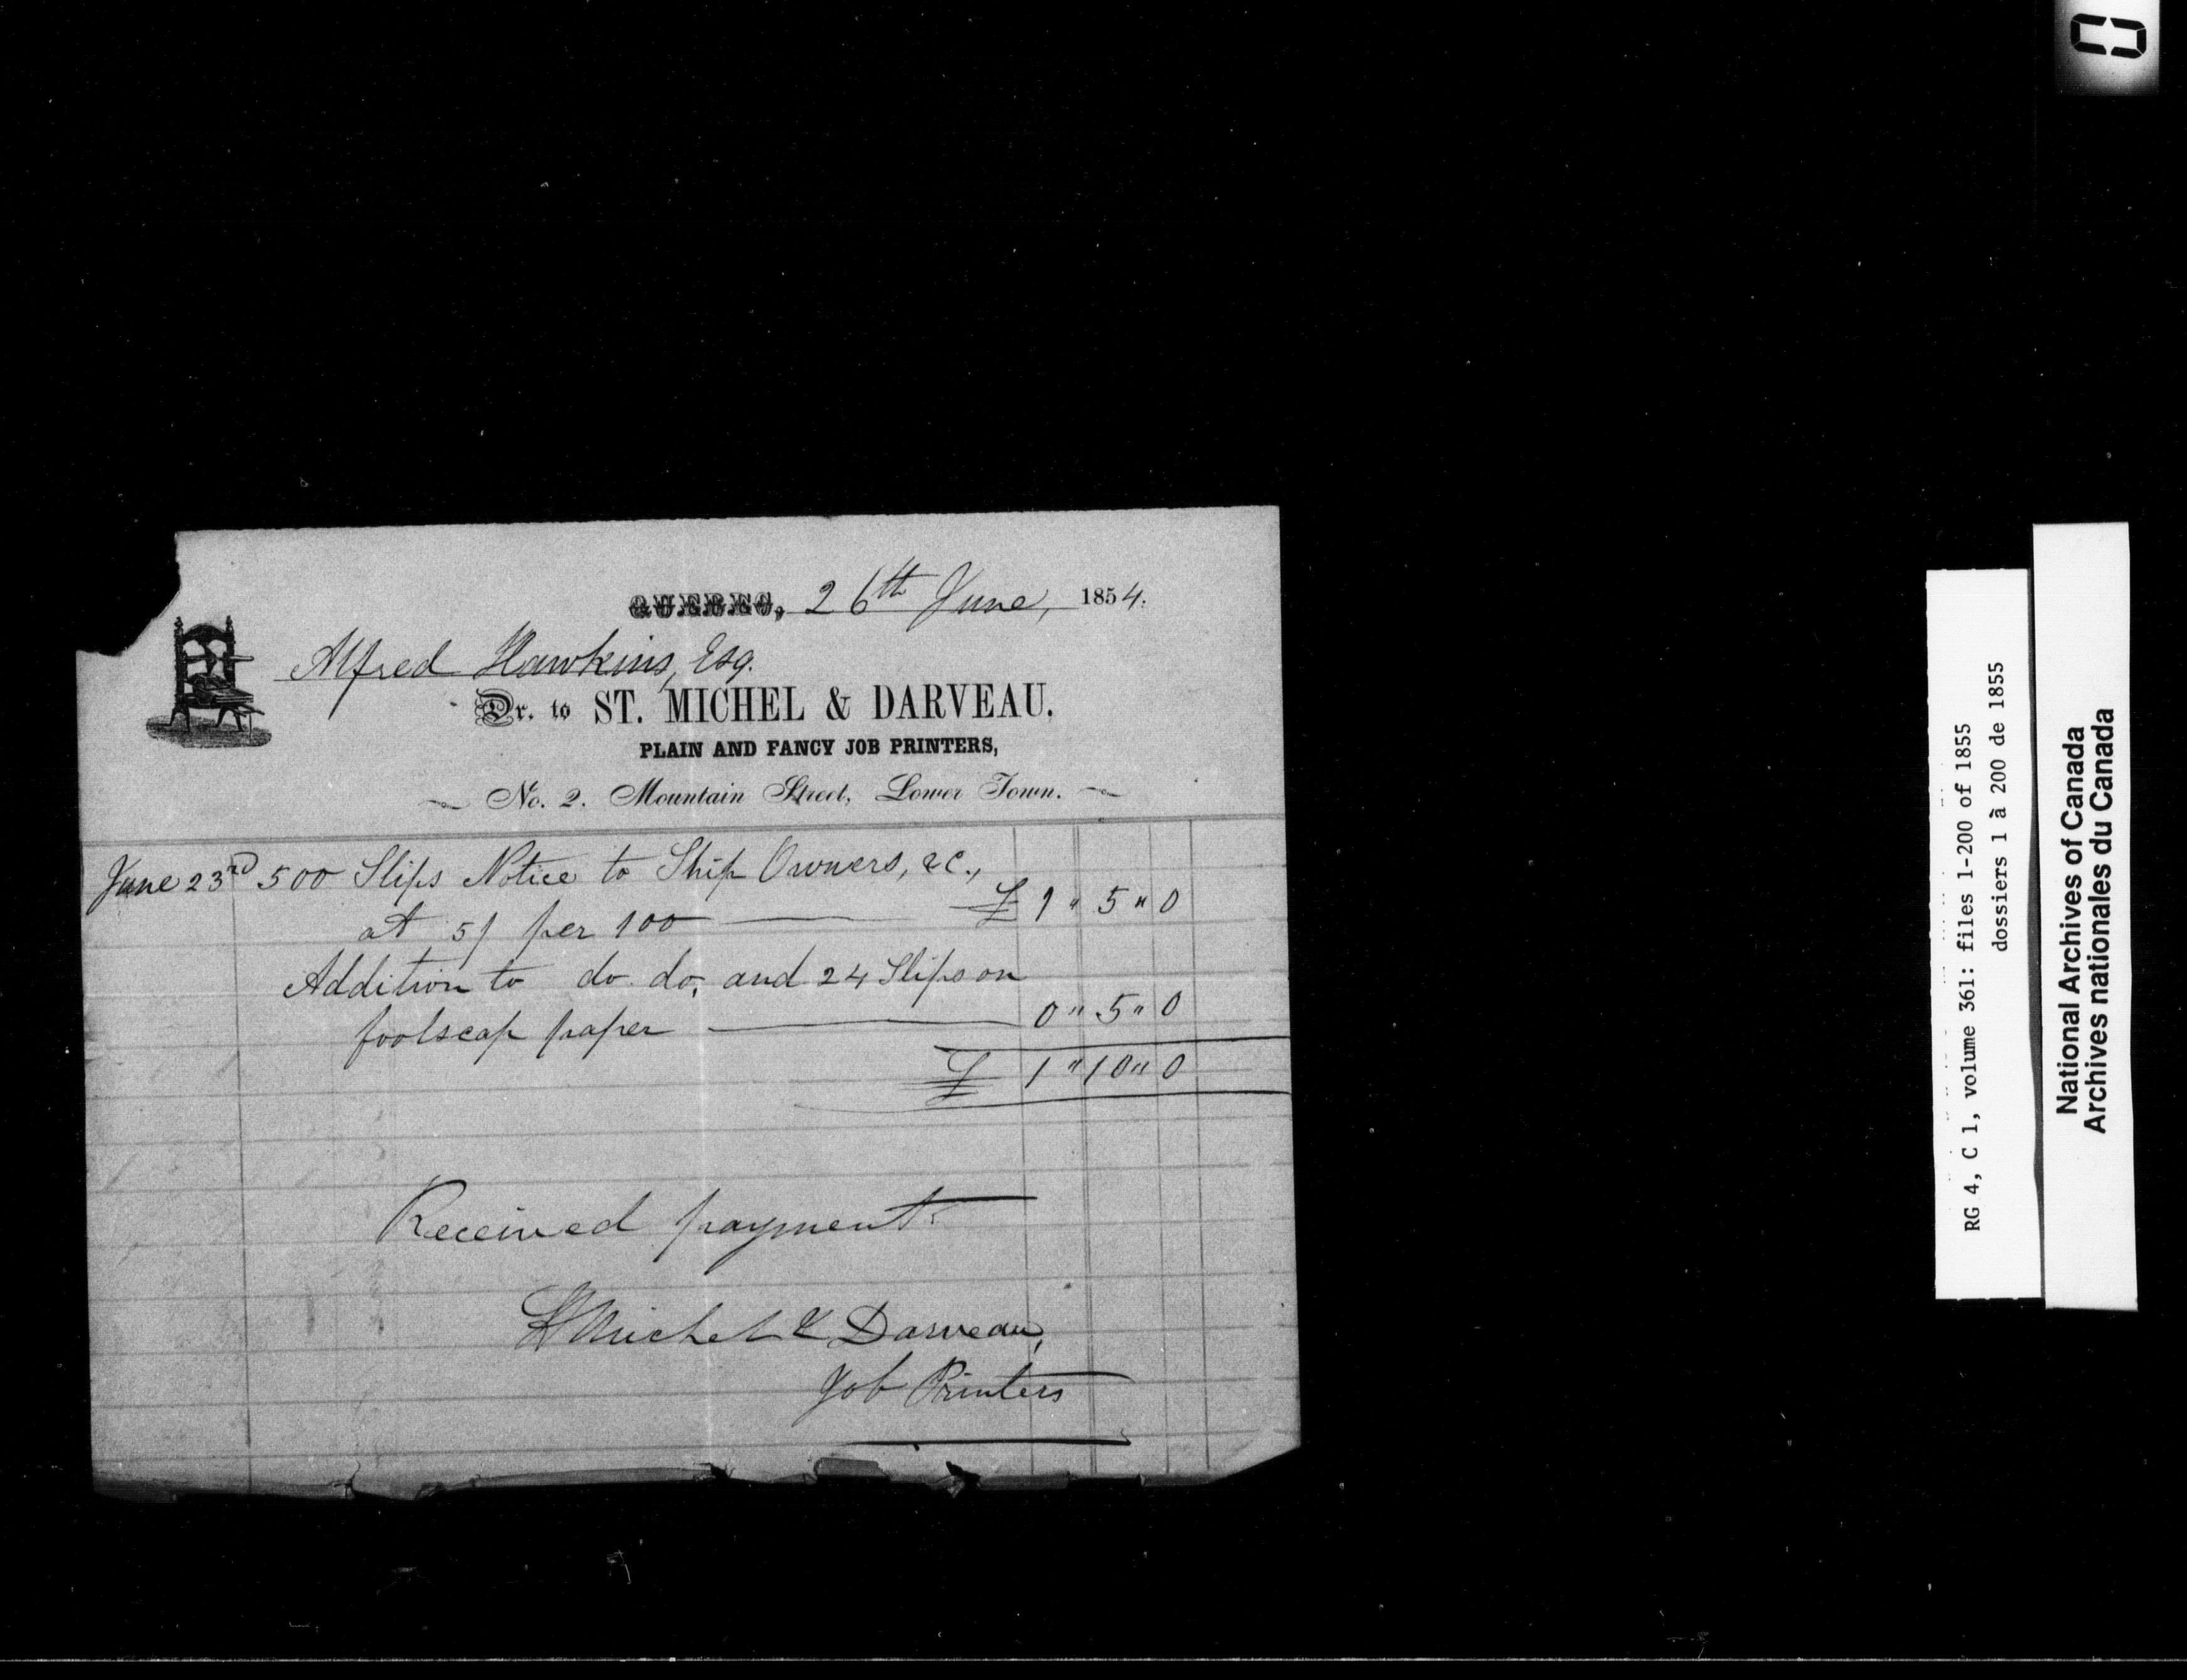 QUEBEC, 26th June, 1854.
Alfred Hawkins, Esq.
Dr. to ST. MICHEL & DARVEAU.
PLAIN AND FANCY JOB PRINTERS,
No. 2. Mountain Street, Lower Town.
June 23rd 500 Slips Notice to Ship Owners, &c.,
at 5/ per 100 £ 1 " 5 " 0
Addition to do. do, and 24 Slips on
foolscap paper 0 " 5 " 0
£ 1 " 10 " 0
Received payment.
St Michel & Darveau,
Job Printers
RG 4, C 1, volume 361: files 1-200 of 1855
dossiers 1 à 200 de 1855
National Archives of Canada
Archives nationales du Canada
0